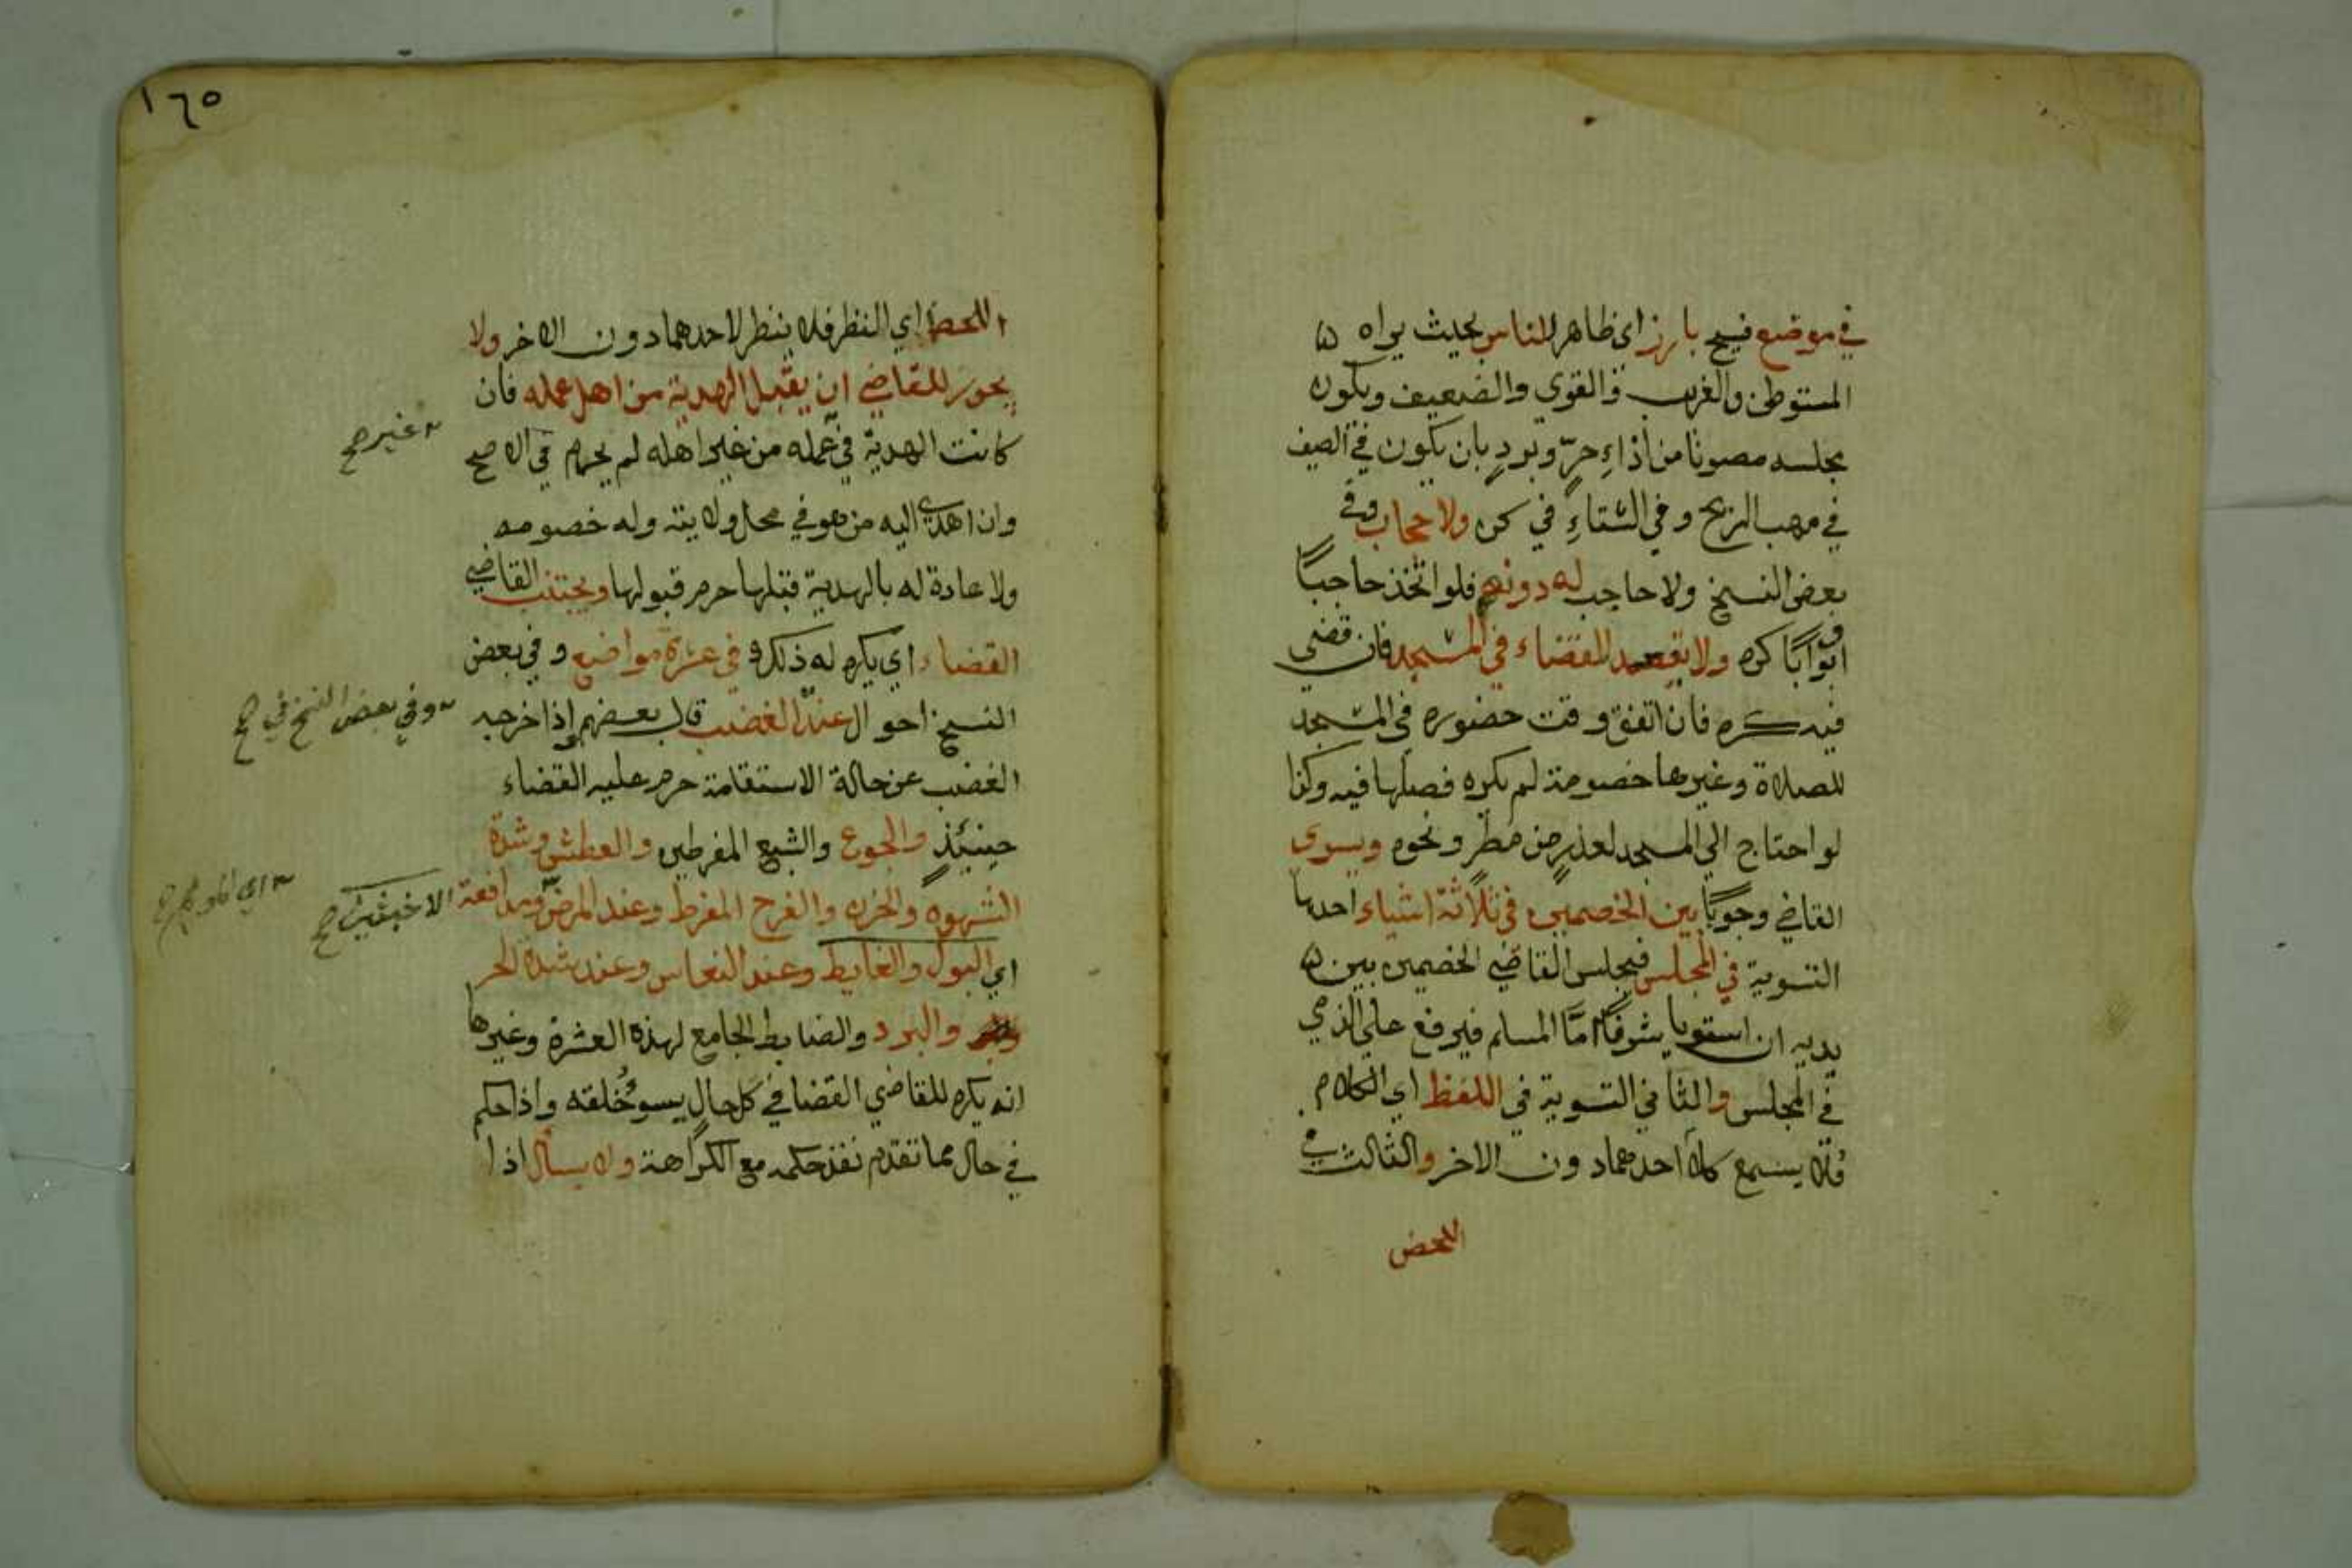 في موضع فسيح بارز اي ظاهر للناس بحيث يراه
المستوطن والغريب والقوي والضعيف ويكون
مجلسه مصونا من أذاءِ حرّ وبردٍ بان يكون في الصيف
في مهب الريح وفي الشتاءِ في كن ولا حجاب وفي
بعض النسخ ولا حاجب له دونهم فلو اتخذ حاجبًا
او بوابًا كره ولا يقعد للقضاء في المسجد فان قضى
فيه كره فان اتفق وقت حضوره في المسجد
للصلاة وغيرها خصومة لم يكره فصلها فيه وكذا
لو احتاج الي المسجد لعذرٍ من مطرٍ ونحوه ويسوى
القاضي وجوبًا بين الخصمين في ثلاثة اشياء احدها
التسوية في المجلس فيجلس القاضي الخصمين بين
يديه ان استويا شرفًا امّا المسلم فيرفع على الذمي
في المجلس والثاني التسوية في اللفظ اي الكلام
فلا يسمع كلام احدهما دون الاخر والثالث في
اللحض
١٦٥
اللحظ اي النظر فلا ينظر لاحدهما دون الاخر ولا
يجوز للقاضي ان يقبل الهدية من اهل عمله فان
كانت الهدية في عمله من غير اهله لم يحرم في الاصح
وان اهدى اليه من هو في محل ولايته وله خصومه
ولا عادة له بالهدية قبلها حرم قبولها ويجتنب القاضي
القضاء اي يكره له ذلك في عشرة مواضع وفي بعض
النسخ احوال عند الغضب قال بعضهم إذا اخرجه
الغضب عن حالة الاستقامة حرم عليه القضاء
حينئذٍ والجوع والشبع المفرطين والعطش وشدة
الشهوه والحزن والفرح المفرط وعند المرض ومدافعة الاخبثين صح
اي البول والغايط وعند النعاس وعند شدة الحر
والبرد والضابط الجامع لهذه العشرة وغيرها
انه يكره للقاضي القضا في كل حال يسوءُ خُلقه واذا حكم
في حال مما تقدم نفذ حكمه مع الكراهة ولا يسأل اذا
غير صح
وفي بعض النسخ في صح